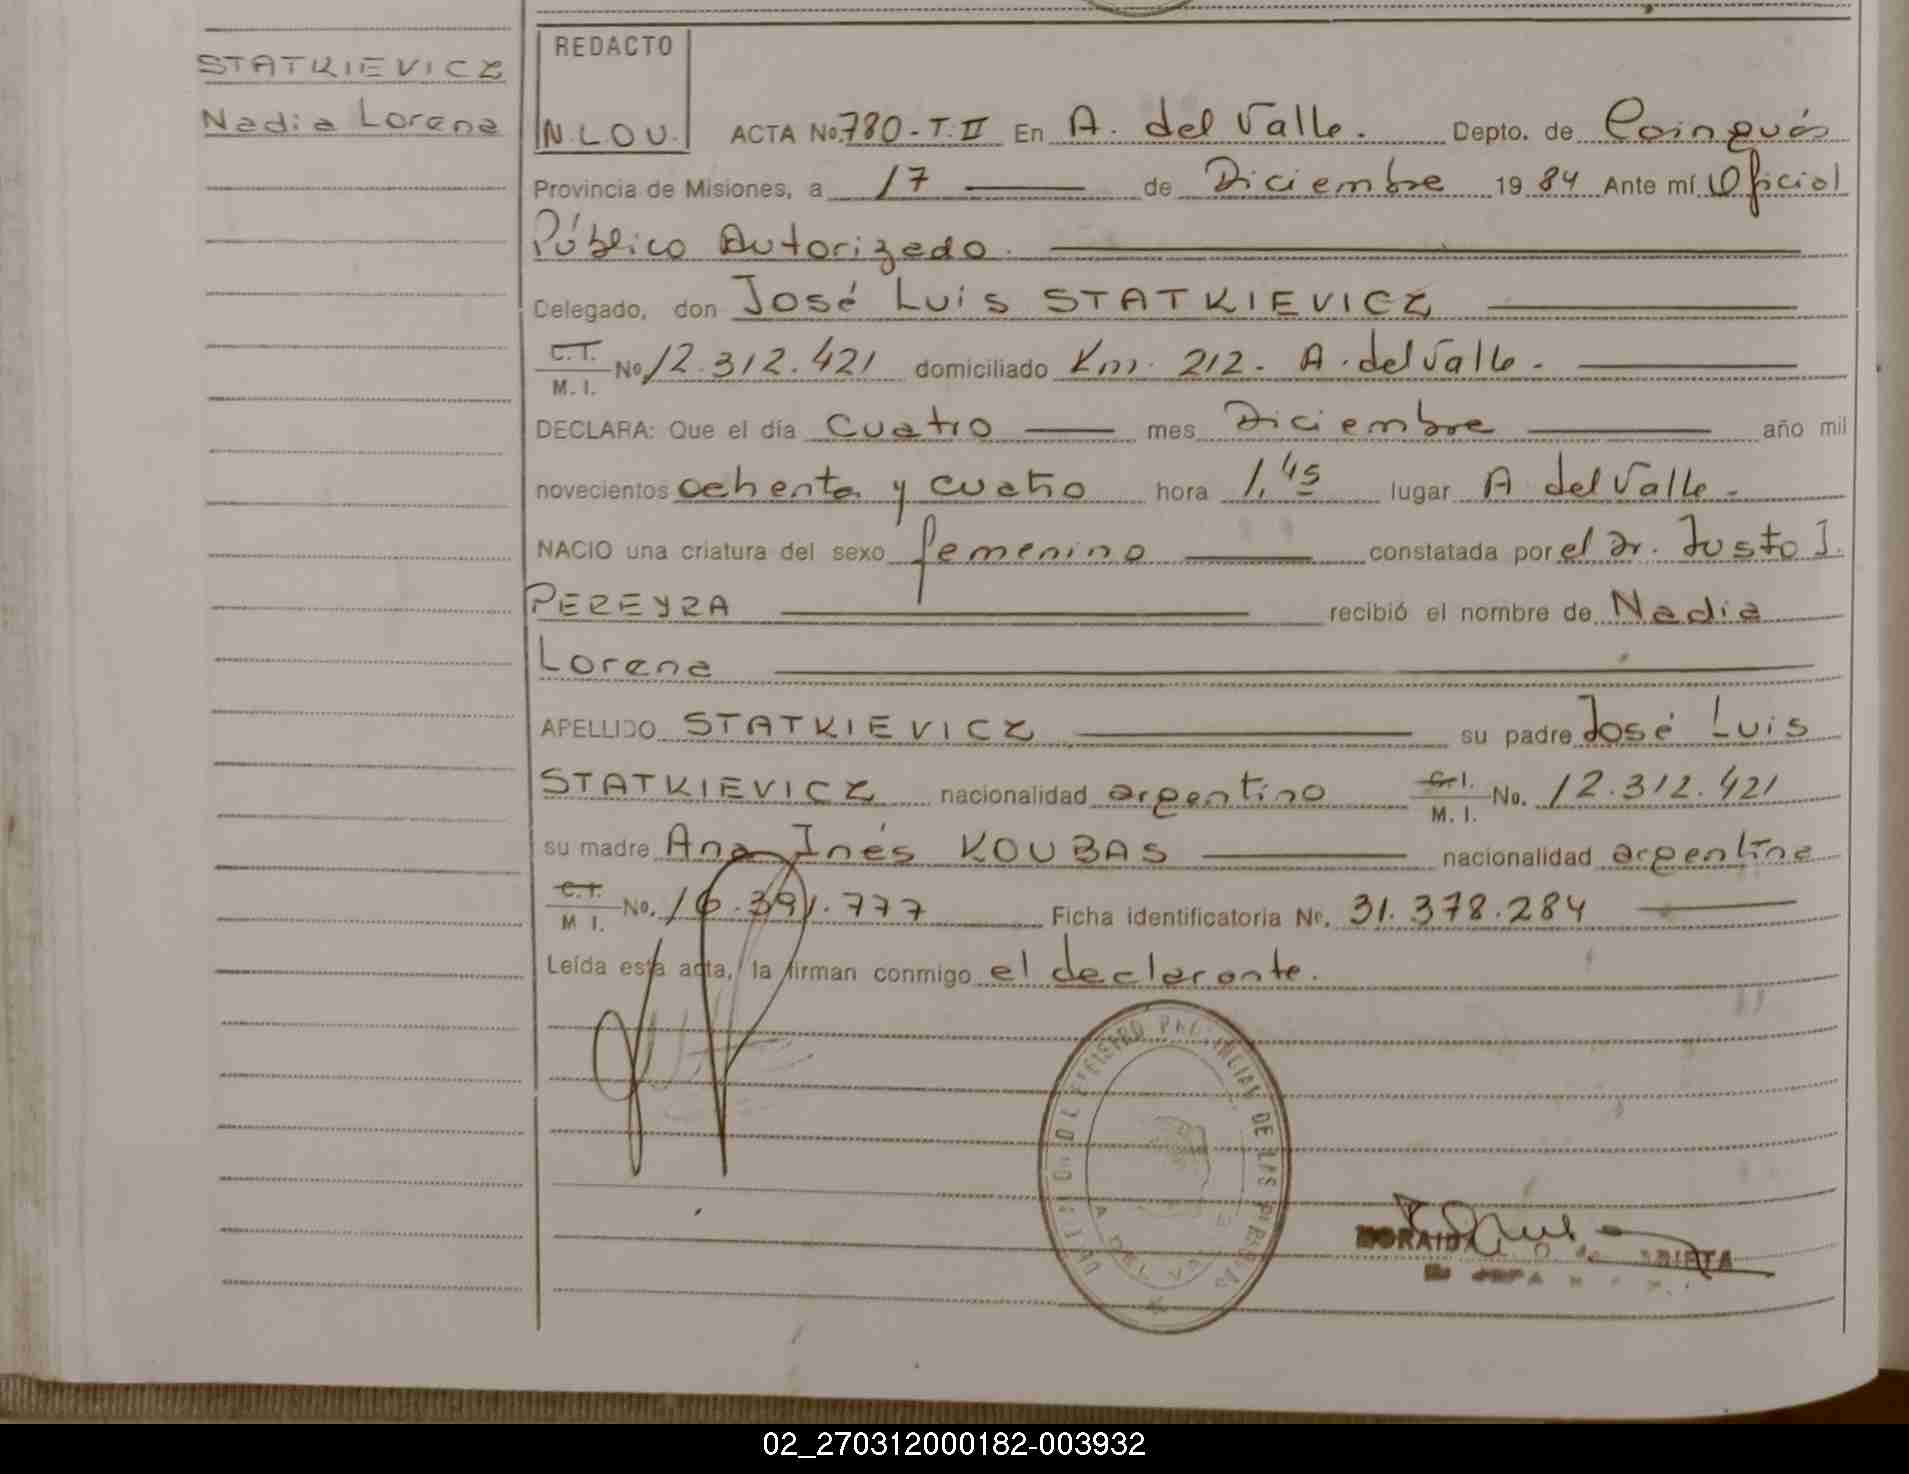 STATKIEVICZ
Nadia Lorena
REDACTO
N.L.O.U.
ACTA No. 780-T.II En A. del Valle. Depto. de Cainguás
Provincia de Misiones, a 17 de Diciembre 19 84 Ante mí Oficial
Público Autorizado.
Delegado, don José Luis STATKIEVICZ
C.I. M. I. No 12.312.421 domiciliado Km. 212. A. del Valle.
DECLARA: Que el día cuatro mes Diciembre año mil
novecientos ochenta y cuatro hora 1,45 lugar A del Valle
NACIO una criatura del sexo femenino constatada por el Dr. Justo J.
PEREYRA recibió el nombre de Nadia
Lorena
APELLIDO STATKIEVICZ su padre José Luis
STATKIEVICZ nacionalidad argentino C.I. M. I. No. 12.312.421
su madre Ana Inés KOUBAS nacionalidad argentina
C.I. M I. No. 16.391.777 Ficha identificatoria No. 31.378.284
Leída esta acta, la firman conmigo el declarante.
REGISTRO PROVINCIAL DE LAS PERSONAS
A. DEL VALLE
02_270312000182-003932